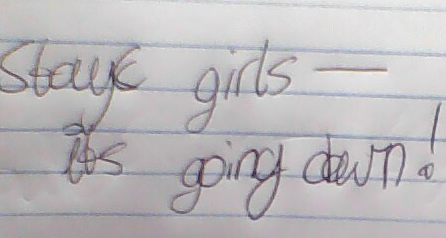 girls —
its going down!